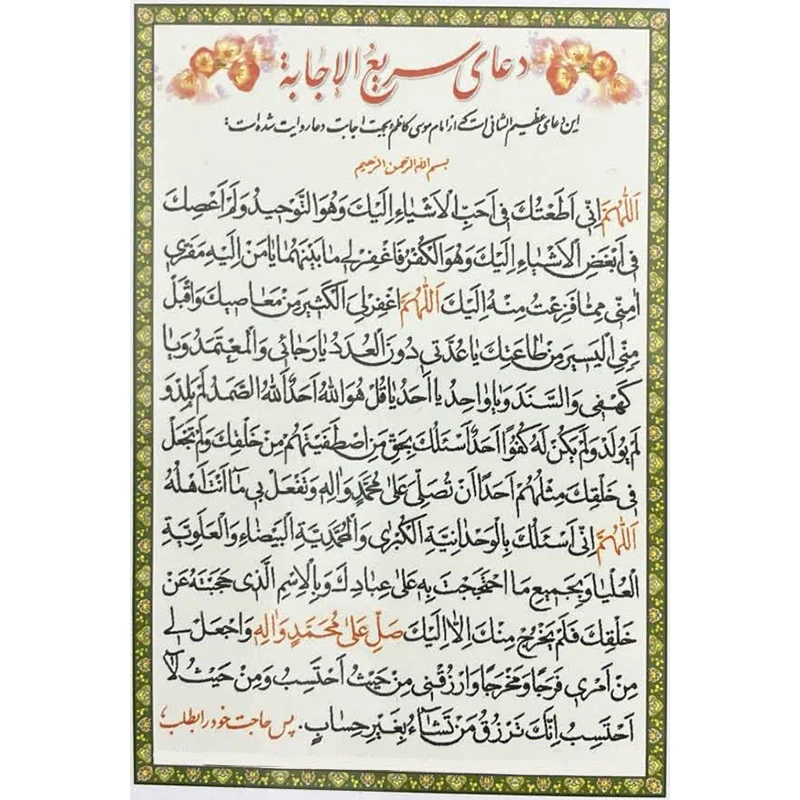 دعای سریع الإجابة
این دعای عظیم الشانی است که از امام موسی کاظم بجهت اجابت دعا روایت شده است:
بسم الله الرحمن الرحیم
اَللّهُمَّ اِنّی اَطَعْتُكَ فی اَحَبِّ الْاَشْیاءِ اِلَیْكَ وَهُوَ التَّوْحیدُ وَلَمْ اَعْصِكَ
فی اَبْغَضِ الْاَشْیاءِ اِلَیْكَ وَهُوَ الْكُفْرُ فَاغْفِرْ لی ما بَیْنَهُما یا مَنْ اِلَیْهِ مَفَرّی
امِنّی مِمّا فَزِعْتُ مِنْهُ اِلَیْكَ اَللّهُمَّ اغْفِرْ لِیَ الْكَثیرَ مِنْ مَعاصیكَ وَاقْبَلْ
مِنِّی الْیَسیرَ مِنْ طاعَتِكَ یا عُدَّتی دُونَ الْعُدَدِ یا رَجائی وَالْمُعْتَمَدُ وَیا
كَهْفی وَالسَّنَدَ وَیا واحِدُ یا اَحَدُ یا قُلْ هُوَ اللهُ اَحَدٌ اَللهُ الصَّمَدُ لَمْ یَلِدْ وَ
لَمْ یُولَدْ وَلَمْ یَكُنْ لَهُ كُفُوًا اَحَدٌ اَسْئَلُكَ بِحَقِّ مَنِ اصْطَفَیْتَهُمْ مِنْ خَلْقِكَ وَلَمْ تَجْعَلْ
فی خَلْقِكَ مِثْلَهُمْ اَحَدًا اَنْ تُصَلِّیَ عَلی مُحَمَّدٍ وَالِهِ وَتَفْعَلَ بی ما اَنْتَ اَهْلُهُ
اَللّهُمَّ اِنّی اَسْئَلُكَ بِالْوَحْدانِیَّةِ الْكُبْری وَالْمُحَمَّدِیَّةِ الْبَیْضاءِ وَالْعَلَوِیَّةِ
الْعُلْیا وَبِجَمیعِ مَا احْتَجَجْتَ بِهِ عَلی عِبادِكَ وَبِالْاِسْمِ الَّذی حَجَبْتَهُ عَنْ
خَلْقِكَ فَلَمْ یَخْرُجْ مِنْكَ اِلّا اِلَیْكَ صَلِّ عَلی مُحَمَّدٍ وَالِهِ وَاجْعَلْ لی
مِنْ اَمْری فَرَجًا وَمَخْرَجًا وَارْزُقْنی مِنْ حَیْثُ اَحْتَسِبُ وَمِنْ حَیْثُ لا
اَحْتَسِبُ اِنَّكَ تَرْزُقُ مَنْ تَشاءُ بِغَیْرِ حِسابٍ. پس حاجت خود را بطلب؛